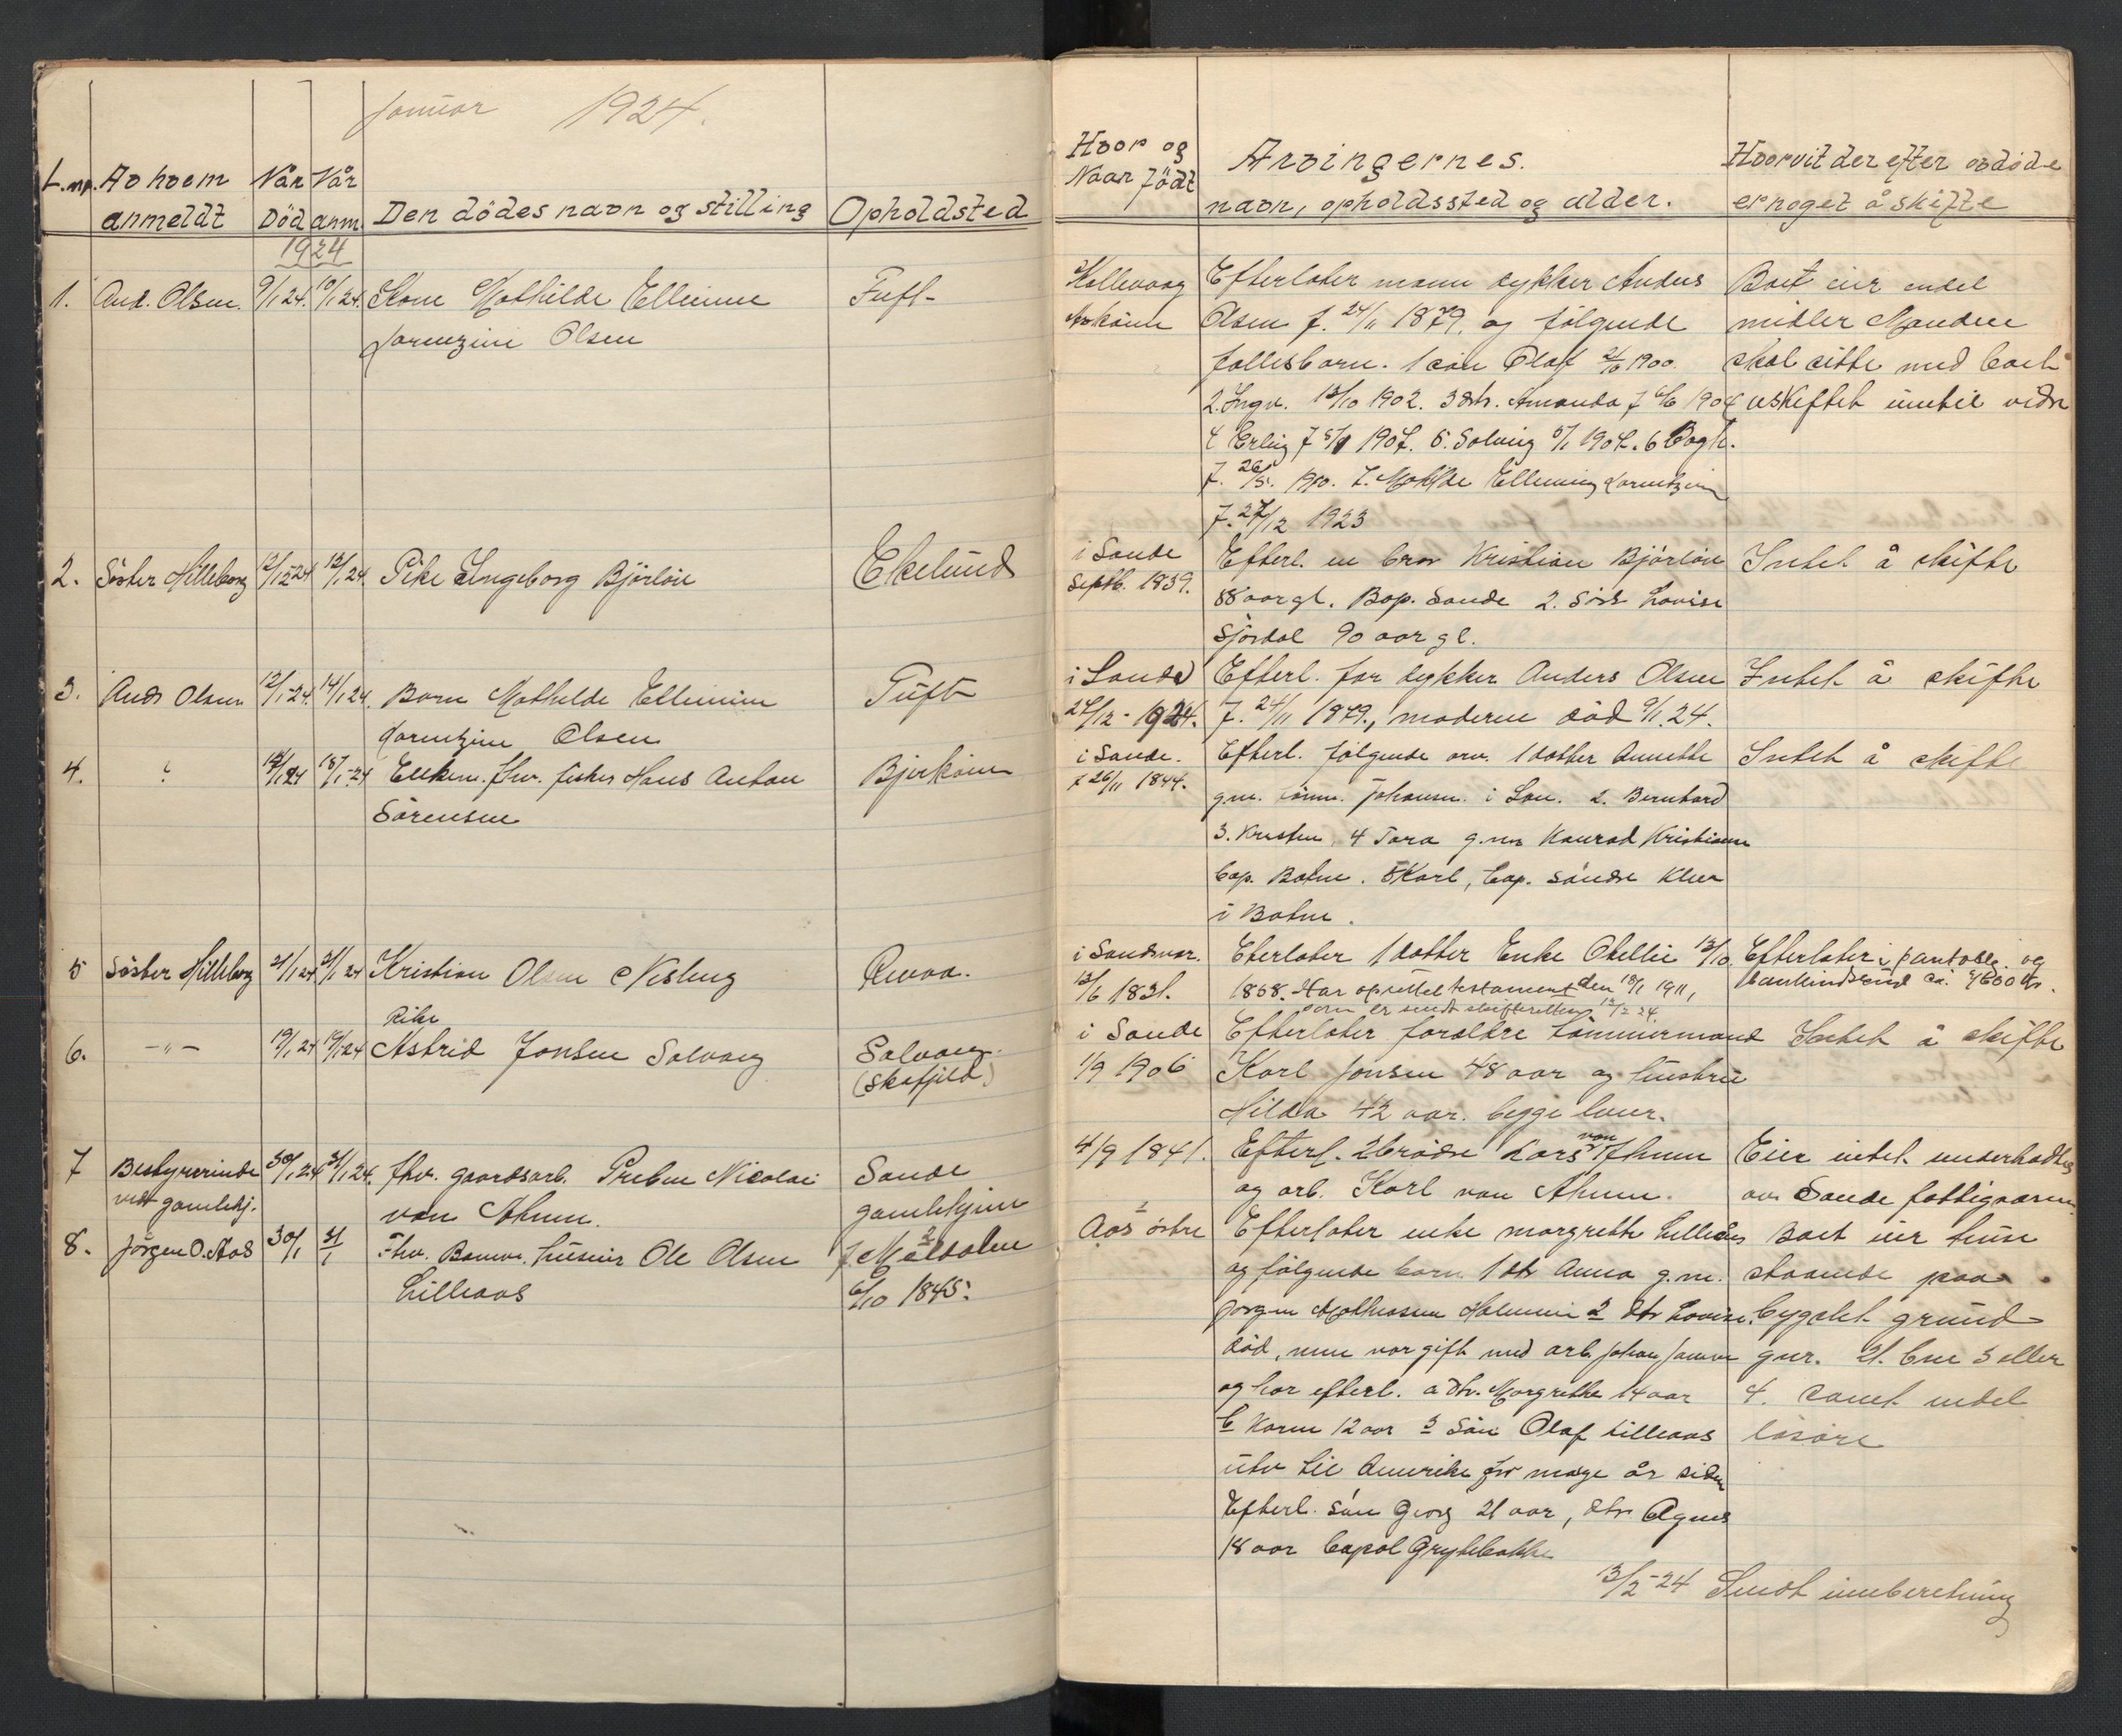 Januar 1924.
L.nr. Av hvem anmeldt Når Død Når anm. Den dödes navn og stilling Opholdsted
1924
1. And. Olsen. 9/1 24. 10/1 24. Kone Mathilde Elleninne Tuft
Lorenzine Olsen
2. Söster Hilleborg 12/1-24 12/1 24. Pike Ingeborg Björlöu Ekelund
3. Ands Olsen 12/1-24. 14/1 24. Barn Mathilde Ellenine Tuft
Lorentzine Olsen
4. 18/1-24 Enkem. fhv. fisker Hans Anton Bjerköen
Sörensen
5 Söster Hilleborg 21/1 24 21/1 24 Kristian Olsen Nesling
Pike
6. -"- 19/1 24 19/1 24 Astrid Jonsen Solvang Solvang
(Skafjeld)
7 Bestyrerinde 30/1 24 31/1 24. fhv. gaardsarb. Preben Nicolai Sande
ved gamlehj. von Ahnen. gamlehjem
8. Jörgen O. Aas 30/1 31/1 Fhv. Banev. huseier Ole Olsen
Lilleaas 6/10 1845.
Hvor og Naar födt
Arvingernes.
navn, opholdssted og alder.
Hvorvit der efter avdöde
er noget å skifte
Hallevaag Efterlater mann dykker Anders Boet eier endel
Olsen f. 24/11 1879. og fölgende midler Manden
fellesbarn. 1 sön Olaf 21/6 1900. skal sitte med boet
2. Ingv. 13/10 1902. 3 dtr. Amanda f 6/6 1904 uskiftet inntil videre
4 Erling f 5/1 1907. 5. Solveig 5/1 1907. 6 Dagh.
f. 26/5. 1910. 7. Mathilde Ellening Lorentzine
f. 27/12 1923
i Sande Efterl. en bror Kristian Björlöu Intet å skifte
Septb. 1839. 88 aar gl. Bop. Sande 2. Söst Lovise
Sjördal 90 aar gl.
i Sande Efterl. far dykker Anders Olsen Intet å skifte
27/12-1924. f. 24/11 1879., moderen död 9/1.24.
i Sande. Efterl. fölgende arv. 1 datter Annette Intet å skifte
f 26/11 1844. g.m. tömm. Johansen. i Lou. 2. Bernhard
3. Kristen, 4 Tora g.m. Konrad Kristiansen
bop. Botne. 5 Karl, bop. söndre Klev
i Botne.
i Sandsvær. Eterlater 1 datter Enke Otellie 13/10 Efterlater i pantobl. og
12/6 1831. 1858. Har oprettet testament den 18/1 1911, bankindskud ca. 4600 kr.
som er sendt skifteretten 12/2 24.
i Sande Efterlater foreldre tömmermand Intet å skifte
1/9 1906 Karl Jonsen 48 aar og hustru
Hilda 42 aar. begge lever.
4/9 1841. Efterl. 2 brödre Lars von Ahnen Eier intet. underholdtes
og arb. Karl von Ahnen. av Sande fattigvæsen
Aas östre Efterlater enke Margrethe Lilleaas Boet eier huse
og fölgende barn 1 dtr Anna g.m. staaende paa
Jörgen Mathiasen Holmen 2 dtr Lovise, bygslet grund
död, men var gift med arb. Johan Jansen gnr. 21. bnr 3 eller
og har efterl. a dtr. Margrethe 14 aar 4. samt endel
b Karen 12 aar 3 Sön Olaf Lilleaas lösöre
utv til Amerika for mange år siden
Efterl. sön Georg 21 aar, dtr. Agnes
18 aar bopæl Grytebakke
13/2-24 Sendt innberetning